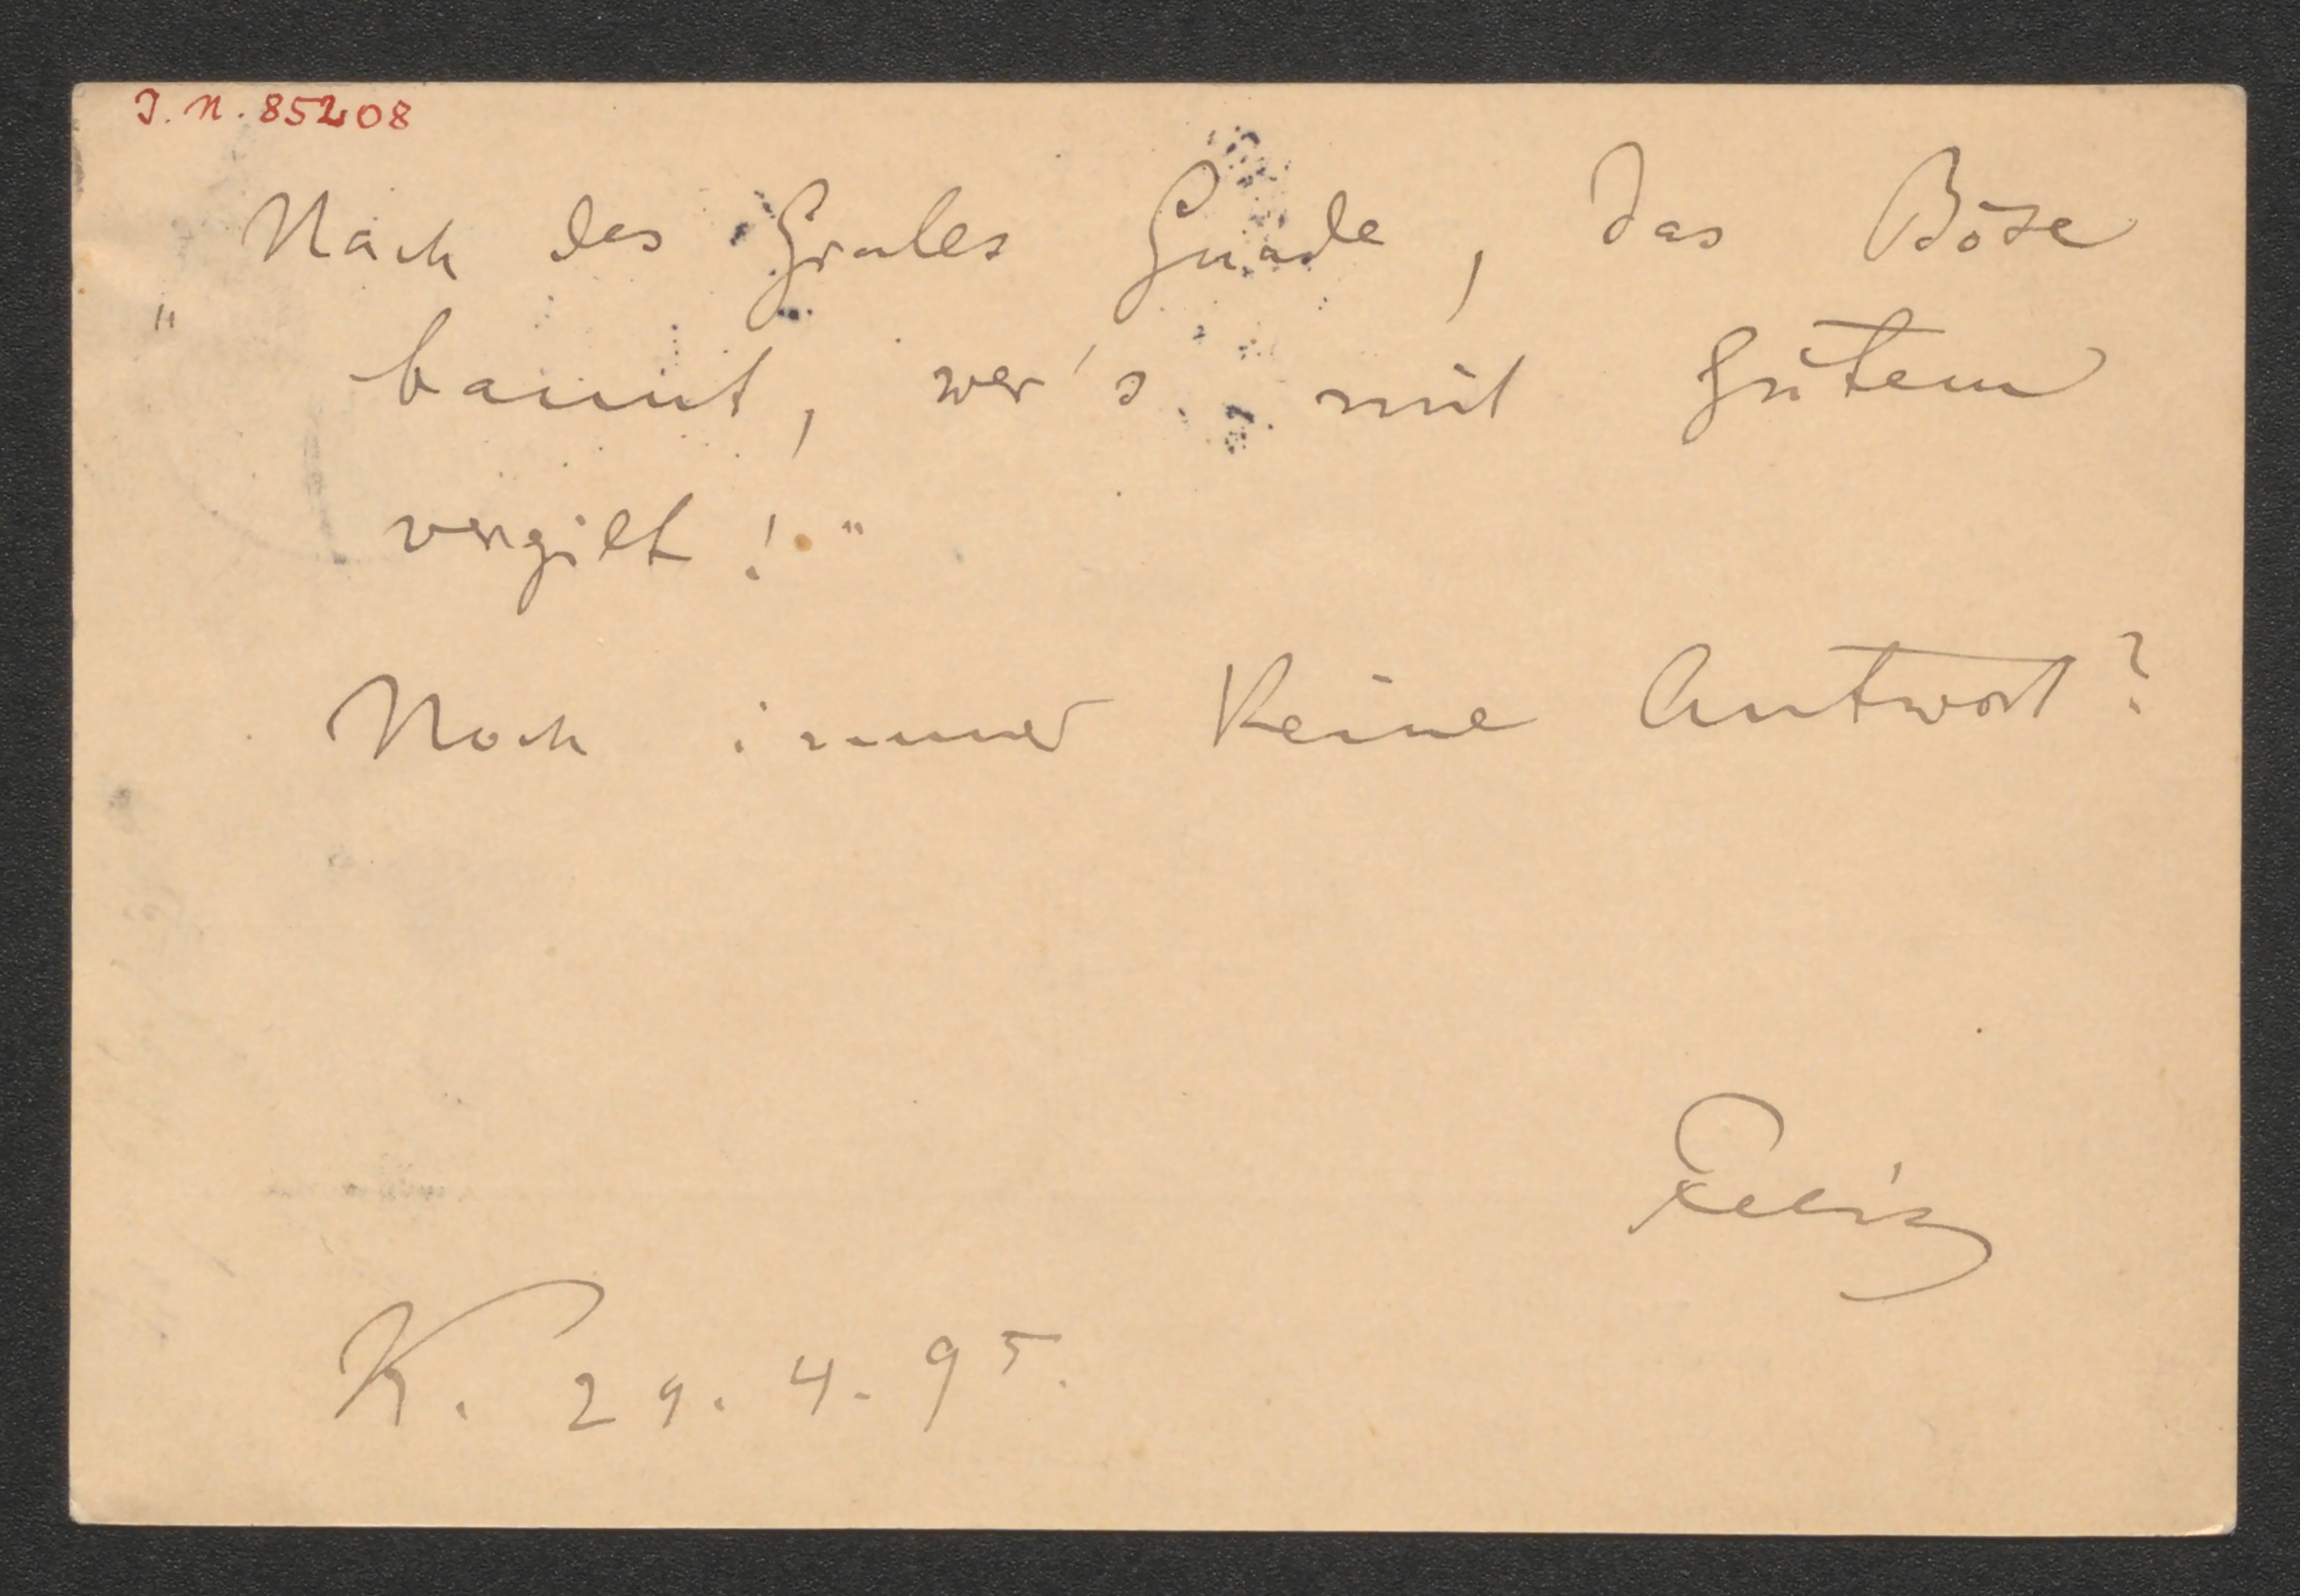 J. N. 85208
Nach des Grales Gnade, das Böse
" bannt, wer's mit Gutem
vergilt!"
Noch immer keine Antwort?
Felix
K. 29. 4. 95.